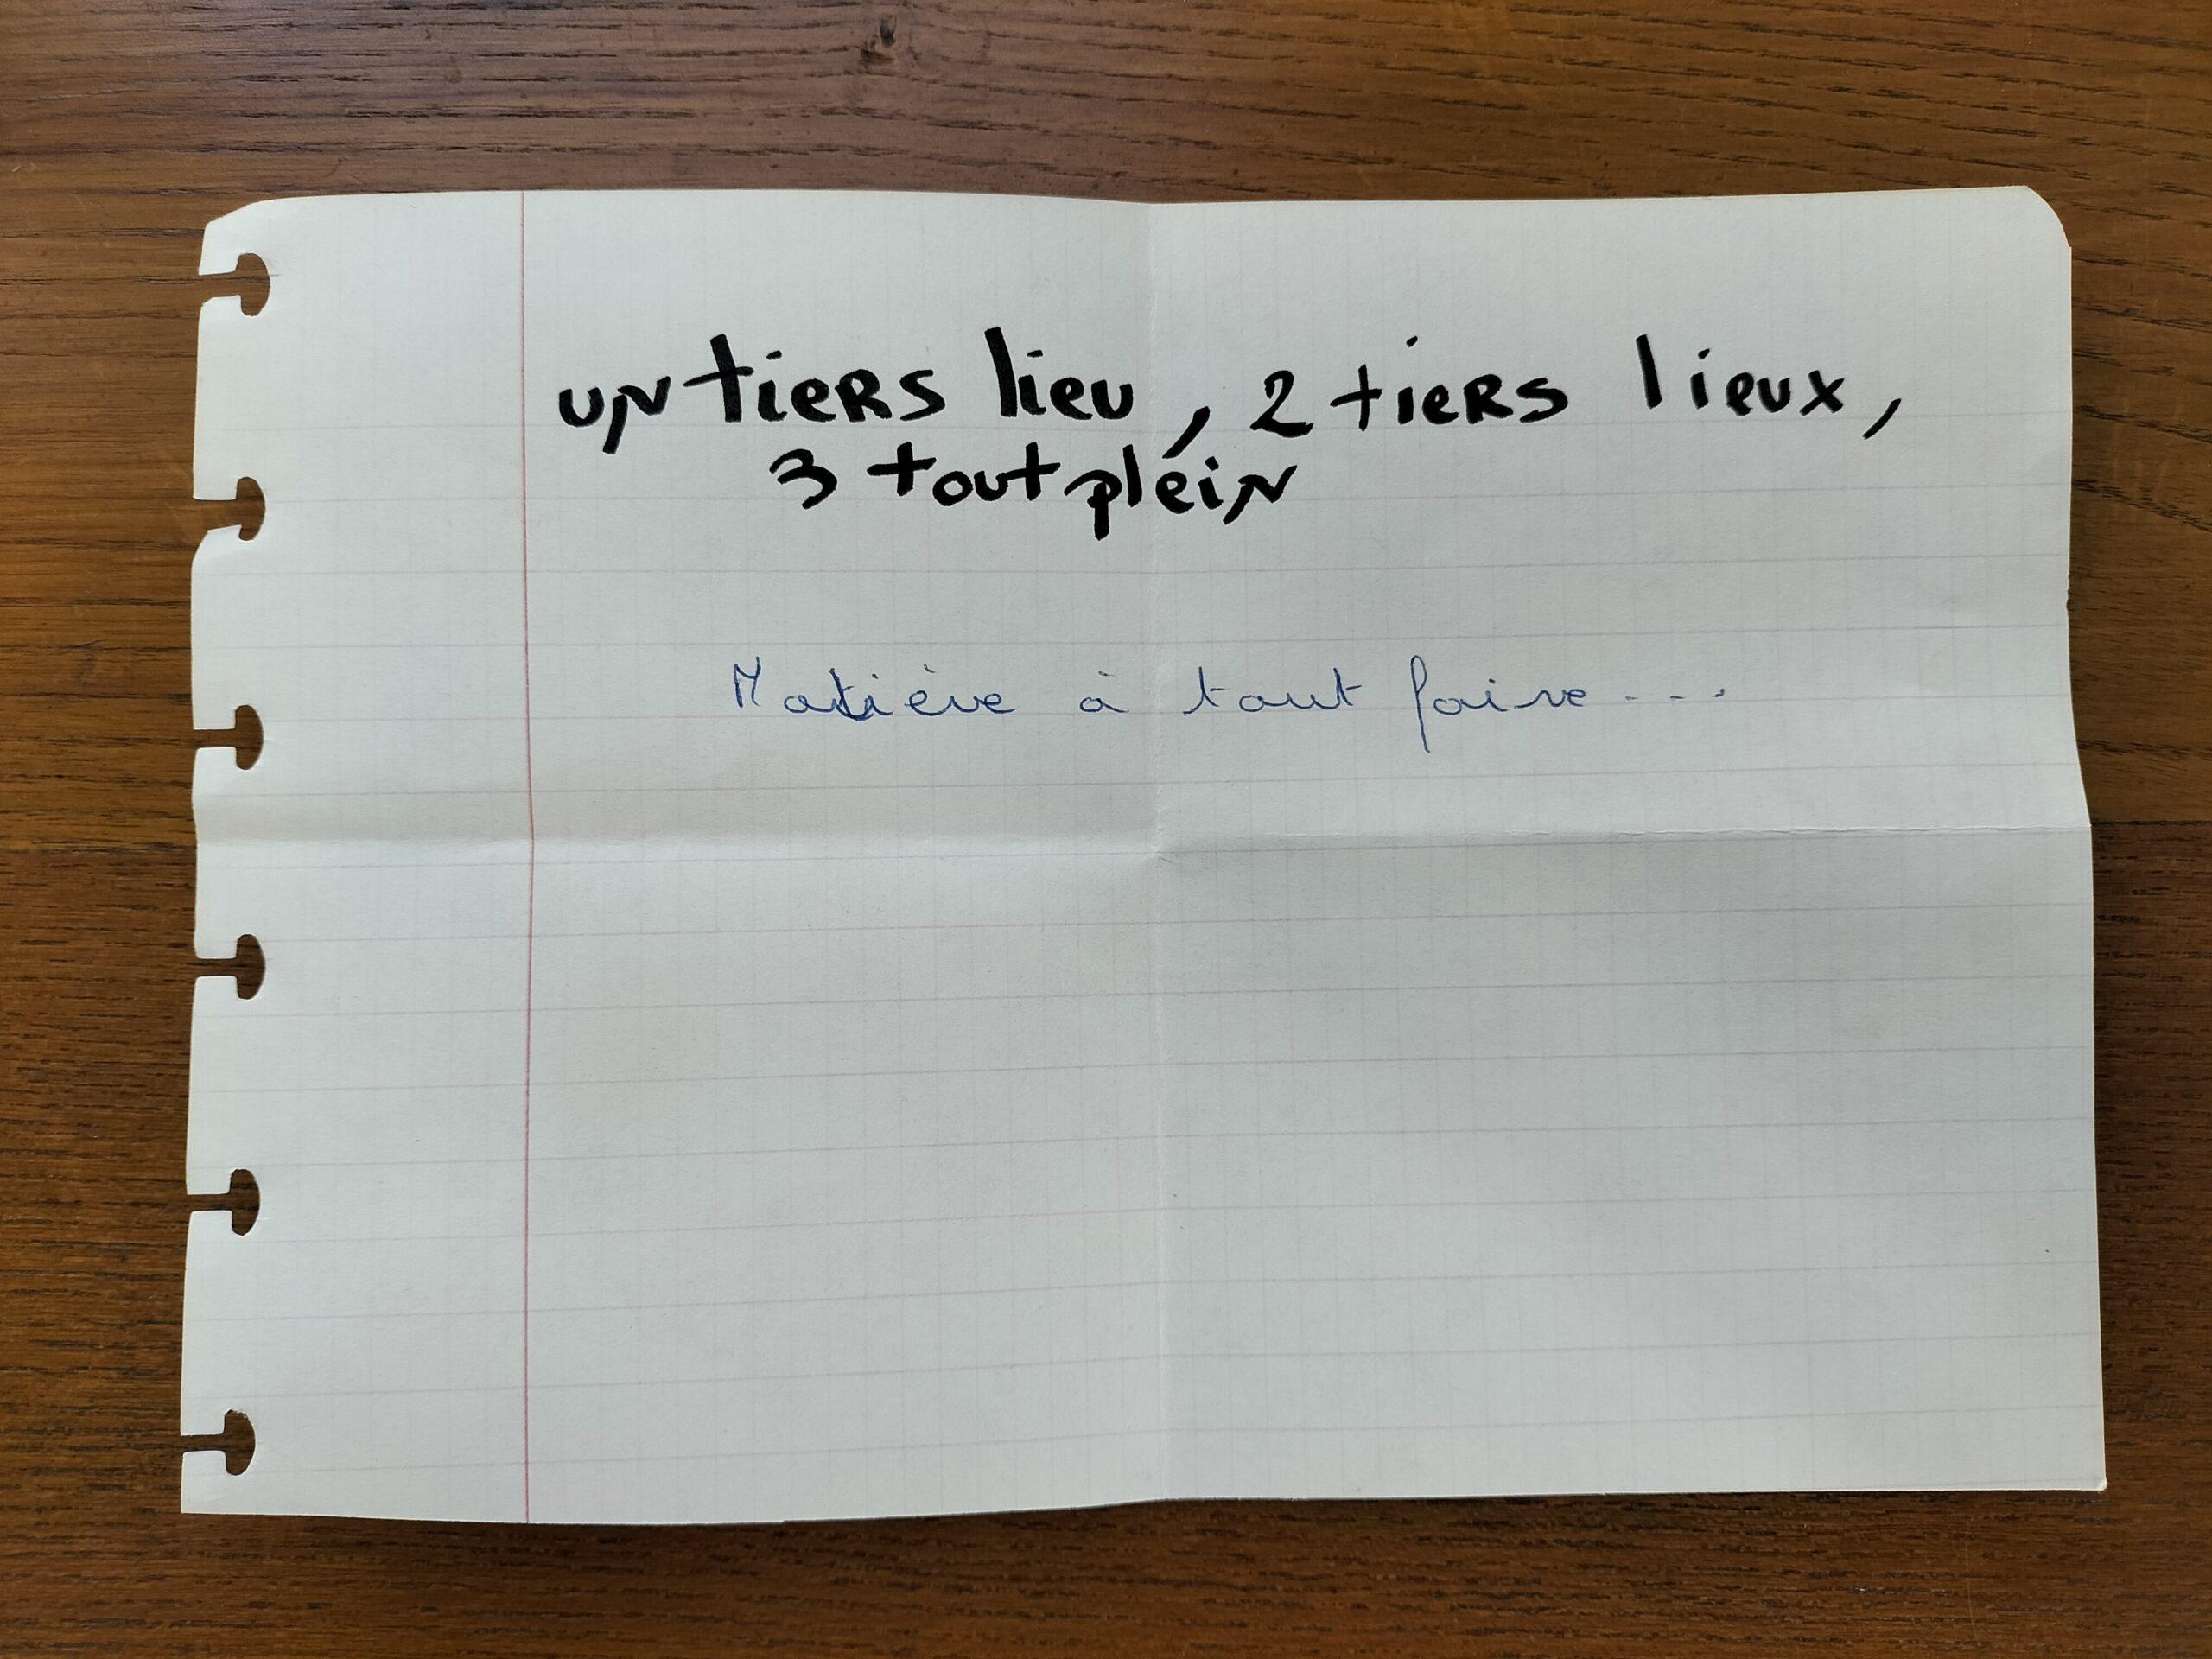 un tiers lieu, 2 tiers lieux,
3 tout plein
Matière à tout faire...